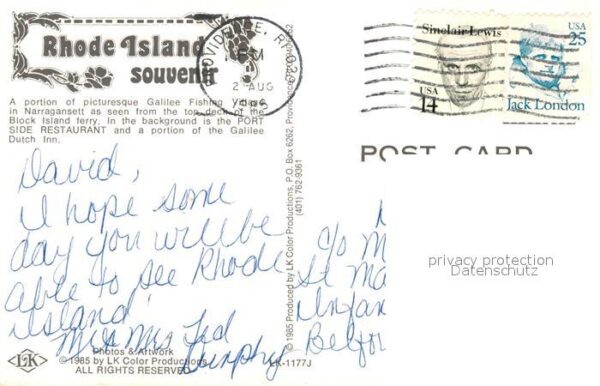 Rhode Island
souvenir
A portion of picturesque Galilee Fishing Village
in Narragansett as seen from the top deck of the
Block Island ferry. In the background is the PORT
SIDE RESTAURANT and a portion of the Galilee
Dutch Inn.
David,
I hope some
day you will be
able to see Rhode
Island,
Mr & Mrs Ted
Photos & Artwork
LK
© 1985 by LK Color Productions
ALL RIGHTS RESERVED
LK-1177J
© 1985 Produced by LK Color Productions, P.O. Box 6262, Providence, R.I. 02940
(401) 762-9361
PROVIDENCE, RI
PM
2 AUG
Sinclair Lewis
USA
14
USA
25
Jack London
POST CARD
c/o M
St Ma
Belfor
privacy protection
Datenschutz